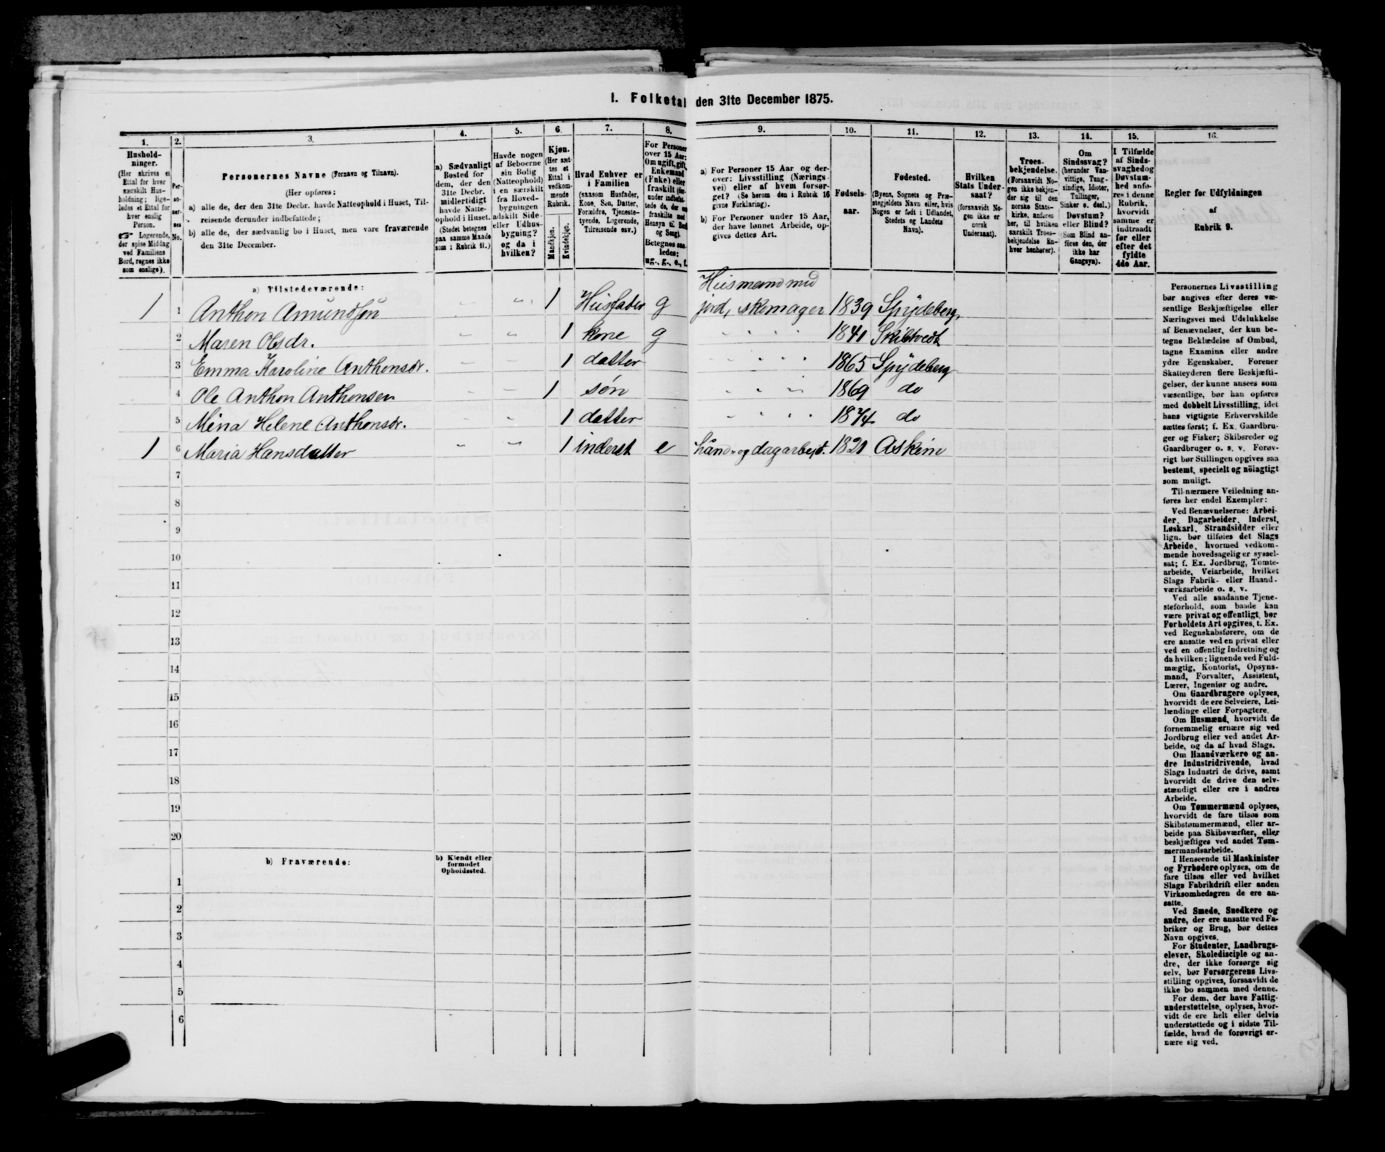 1. Folketal den 31te December 1875.
1.
2.
3.
4.
5.
6.
7.
8.
9.
10.
11.
12.
13.
14.
15.
16.
Hushold-
ninger.
(Her skrives et
Ettal for hver
særskilt Hus-
holdning; lige-
ledes et Ettal for
hver enslig
Person.
☞ Logerende,
der spise Middag
ved Familiens
Bord, regnes ikke
som enslige).
Per-
so-
ner-
nes
No.
Personernes Navne (Fornavn og Tilnavn).
(Her opføres:
a) alle de, der den 31te Decbr. havde Natteophold i Huset, Til-
reisende derunder indbefattede;
b) alle de, der sædvanlig bo i Huset, men vare fraværende
den 31te December.
a) Sædvanligt
Bosted for
dem, der den
31te Decbr.
midlertidigt
havde Natte-
ophold i Huset.
(Stedet betegnes
paa samme Maade
som i Rubrik 11.)
Havde nogen
af Beboerne
sin Bolig
(Natteophold)
i en særskilt
fra Hoved-
bygningen
adskilt Side-
eller Udhus-
bygning?
og da i
hvilken?
Kjøn.
(Her sæt-
tes et
Ettal i
vedkom-
mende
Rubrik.
Mandkjøn.
Kvindekjøn.
Hvad Enhver er
i Familien
(saasom Husfader,
Kone, Søn, Datter,
Forældre, Tjeneste-
tyende, Logerende,
Tilreisende osv.)
For Personer
over 15 Aar:
Om ugift, gift,
Enkemand
(Enke) eller
fraskilt
Betegnes saa-
ledes:
ug., g., e., f.
a) For Personer 15 Aar og der-
over: Livsstilling (Nærings-
vei) eller af hvem forsør-
get? (Se herom den i Rubrik 16
givne Forklaring).
b) For Personer under 15 Aar,
der have lønnet Arbeide, op-
gives dettes Art.
Fødsels-
aar.
Fødested.
(Byens, Sognets og Præ-
stegjeldets Navn eller, hvis
Nogen er født i Udlandet,
Stedets og Landets
Navn).
Hvilken
Stats Under-
saat?
(forsaavidt No-
gen ikke er
norsk
Undersaat).
Troes-
bekjendelse.
(Forsaavidt No-
gen ikke bekjen-
der sig til den
norske Stats-
kirke, anføres
her, til hvilken
særskilt Troes-
bekjendelse En-
hver henhører).
Om
Sindssvag?
(herunder Van-
vittige, Tung-
sindige, Idioter,
Tullinger,
Sinker o. desl.)
Døvstum?
eller Blind?
(Som Blind an-
føres den, der
ikke har
Gangsyn).
I Tilfælde
af Sinds-
svaghed og
Døvstum-
hed anfø-
res i denne
Rubrik,
hvorvidt
samme er
indtraadt
før eller
efter det
fyldte
4de Aar.
Regler for Udfyldningen
af
Rubrik 9.
a) Tilstedeværende:
Husmand med
1 1 Anthon Amundsen " " 1 Husfader g jord, skomager 1839 Spydeberg
2 Maren Olsdr. 1 kone g " " " 1841 Skibtvedt
3 Emma Karoline Anthonsdr. 1 datter " " " 1865 Spydeberg
4 Ole Anthon Anthonsen " 1 søn " " " 1869 do
5 Mina Helene Anthonsdr. " " 1 datter " " " 1874 do
1 6 Maria Hansdatter " " 1 inderst e hånd- og dagarbejd. 1821 Askim
7
8
9
10
11
12
13
14
15
16
17
18
19
20
b) Fraværende:
b) Kjendt eller
formodet
Opholdssted.
1
2
3
4
5
6
Personernes Livsstilling
bør angives efter deres væ-
sentlige Beskjæftigelse eller
Næringsvei med Udelukkelse
af Benævnelser, der kun be-
tegne Beklædelse af Ombud,
tagne Examina eller andre
ydre Egenskaber. Forener
Skatteyderen flere Beskjæfti-
gelser, der kunne ansees som
væsentlige, bør han opføres
med dobbelt Livsstilling, idet
hans vigtigste Erhvervskilde
sættes først; f. Ex. Gaardbru-
ger og Fisker; Skibsreder og
Gaardbruger o. s. v. Forøv-
rigt bør Stillingen opgives saa
bestemt, specielt og nøiagtigt
som muligt.
Til nærmere Veiledning an-
føres her endel Exempler:
Ved Benævnelserne: Arbei-
der, Dagarbeider, Inderst,
Løskarl, Strandsidder eller
lign. bør tilføies det Slags
Arbeide, hvormed vedkom-
mende hovedsagelig er syssel-
sat; f. Ex. Jordbrug, Tomte-
arbeide, Veiarbeide, hvilket
Slags Fabrik- eller Haand-
værksarbeide o. s. v.
Ved alle saadanne Tjene-
steforhold, som baade kan
være privat og offentligt, bør
Forholdets Art opgives, t. Ex.
ved Regnskabsførere, om de
ere ansatte ved en privat eller
ved en offentlig Indretning og
da hvilken; lignende ved Fuld-
mægtig, Kontorist, Opsyns-
mand, Forvalter, Assistent,
Lærer, Ingeniør og andre.
Om Gaardbrugere oplyses,
hvorvidt de ere Selveiere, Lei-
lændinge eller Forpagtere.
Om Husmænd, hvorvidt de
fornemmelig ernære sig ved
Jordbrug eller ved andet Ar-
beide, og da af hvad Slags.
Om Haandværkere og an-
dre Industridrivende, hvad
Slags Industri de drive, samt
hvorvidt de drive den selv-
stændigt eller ere i andres
Arbeide.
Om Tømmermænd oplyses,
hvorvidt de fare tilsøs som
Skibstømmermænd, eller ar-
beide paa Skibsværfter, eller
beskjæftiges ved andet Tøm-
mermandsarbeide.
I Henseende til Maskinister
og Fyrbødere oplyses, om de
fare tilsøs eller ved hvilket
Slags Fabrikdrift eller anden
Virksomhedsgren de ere an-
satte.
Ved Smede, Snedkere og
andre, der ere ansatte ved Fa-
briker og Brug, bør dettes
Navn opgives.
For Studenter, Landbrugs-
elever, Skoledisciple og an-
dre, der ikke forsørge sig
selv, bør Forsørgerens Livs-
stilling opgives, forsaavidt de
ikke bo sammen med denne.
For dem, der have Fattig-
understøttelse, oplyses, hvor-
vidt de ere helt eller delvis
understøttede og i sidste Til-
fælde, hvad de forøvrigt er-
nære sig ved.